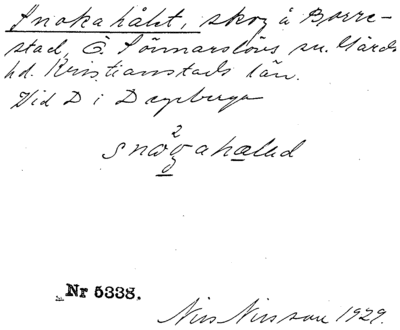 Snokahålet, skog å Borre-
stad, Ö. Sönnarslövs sn. Gärds
hd. Kristianstads län.
Vid D i Degeberga
snogahalad
Nr 5338.
Nils Nilsson 1929.